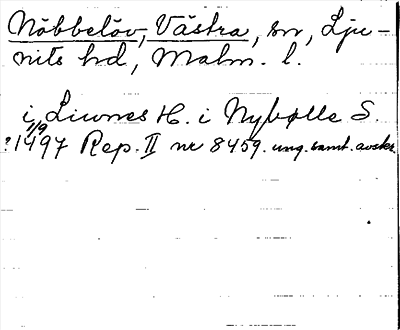 Nöbbelöv, Västra, sn, Lju-
nits hd, Malm. l.
i Liunes H. i Nybølle S.
1/9
? 1497 Rep. II nr 8459. ung. samt. avskr.